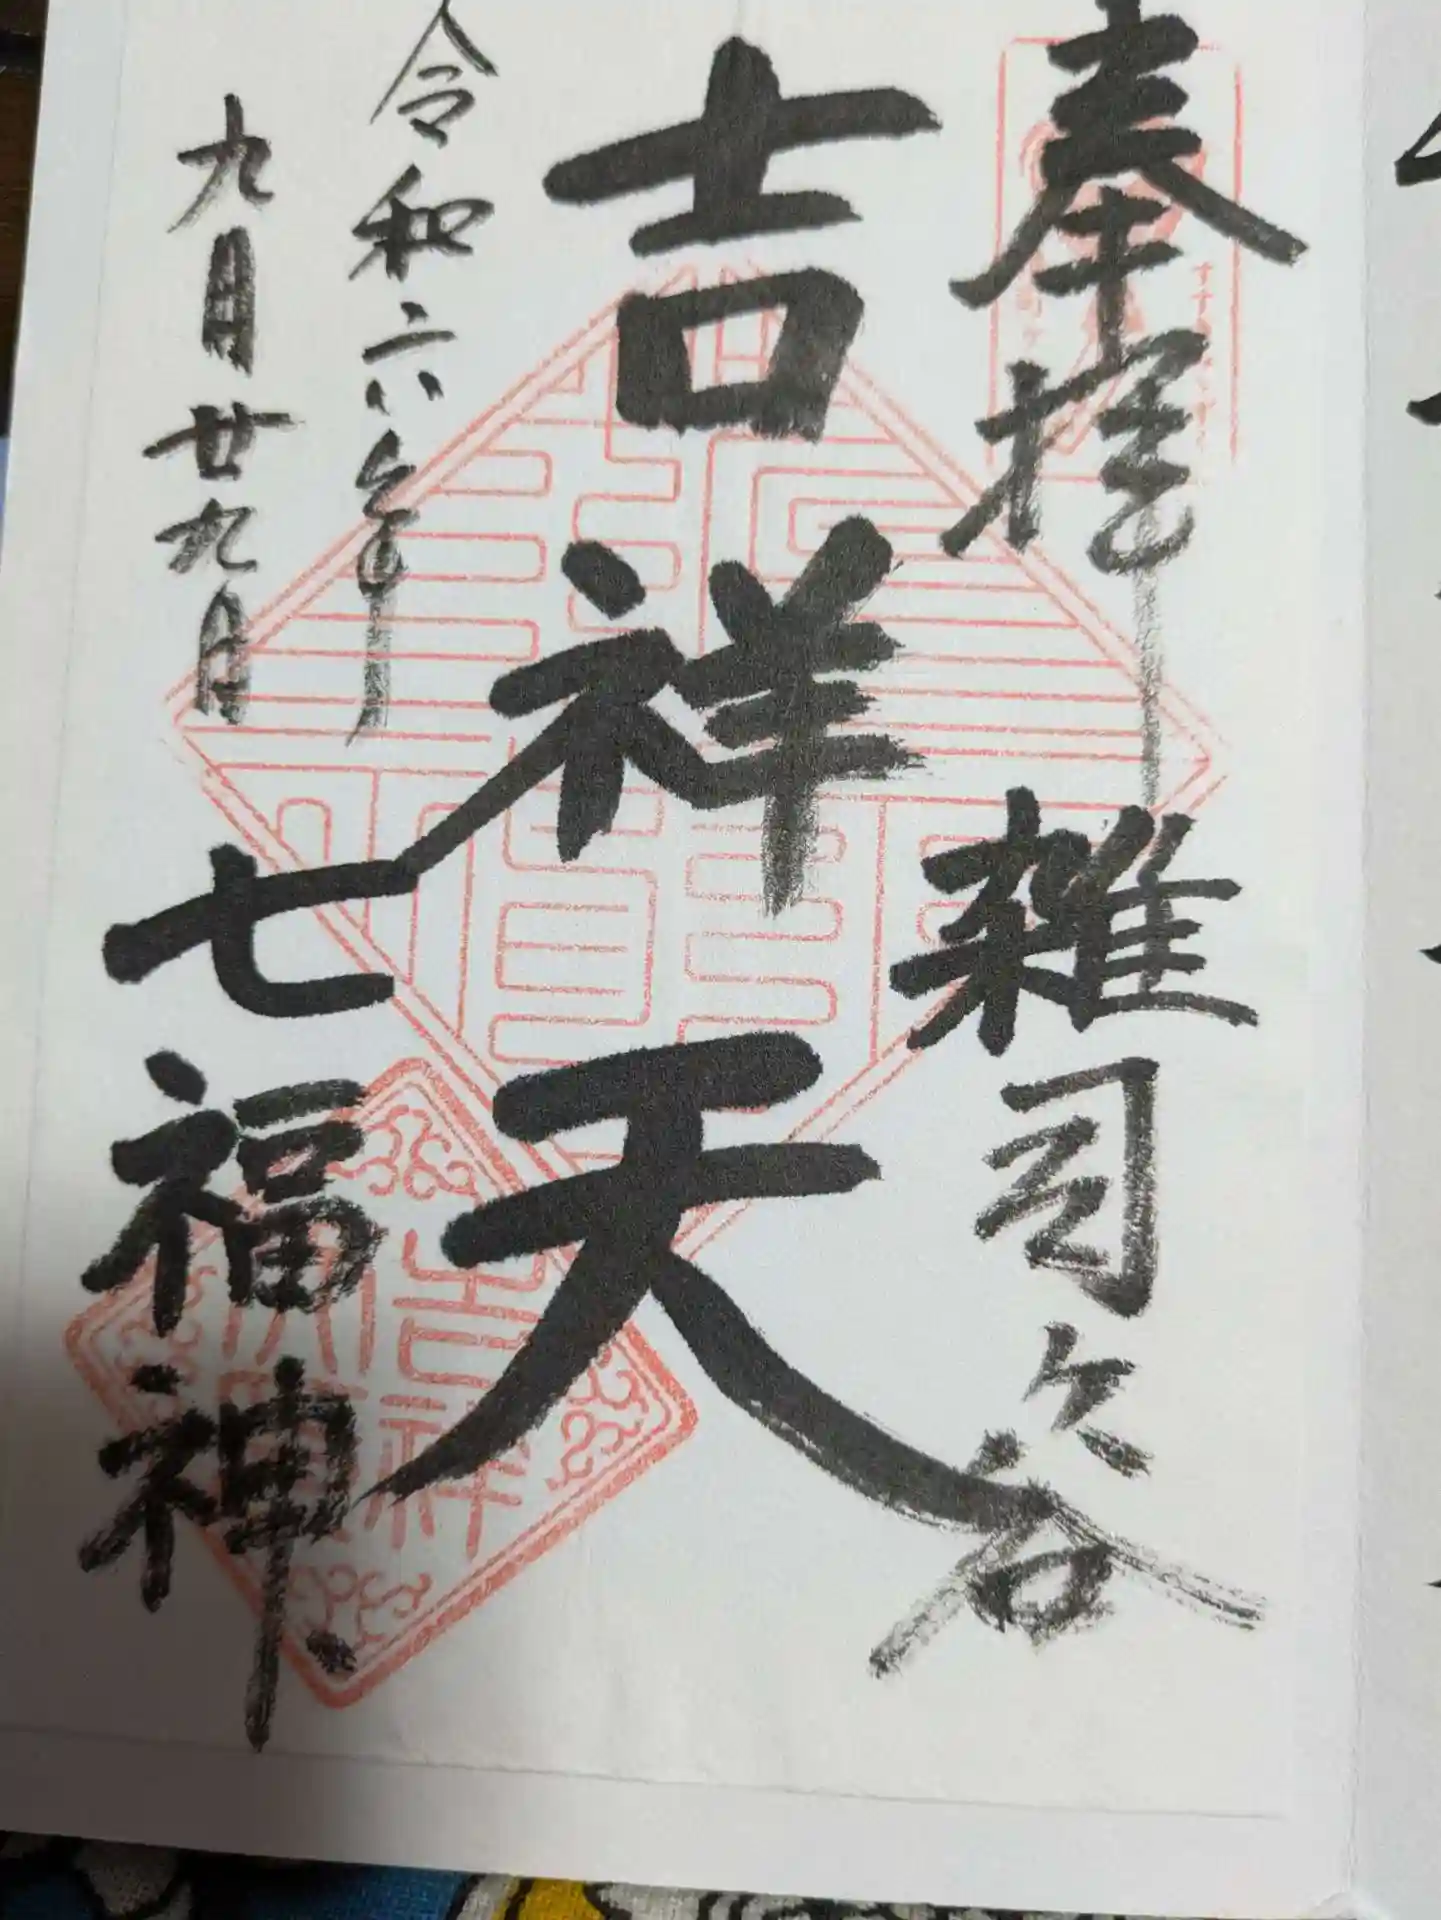 奉拝
雑司ヶ谷
吉祥天
令和六年
九月廿九日
七福神
吉祥